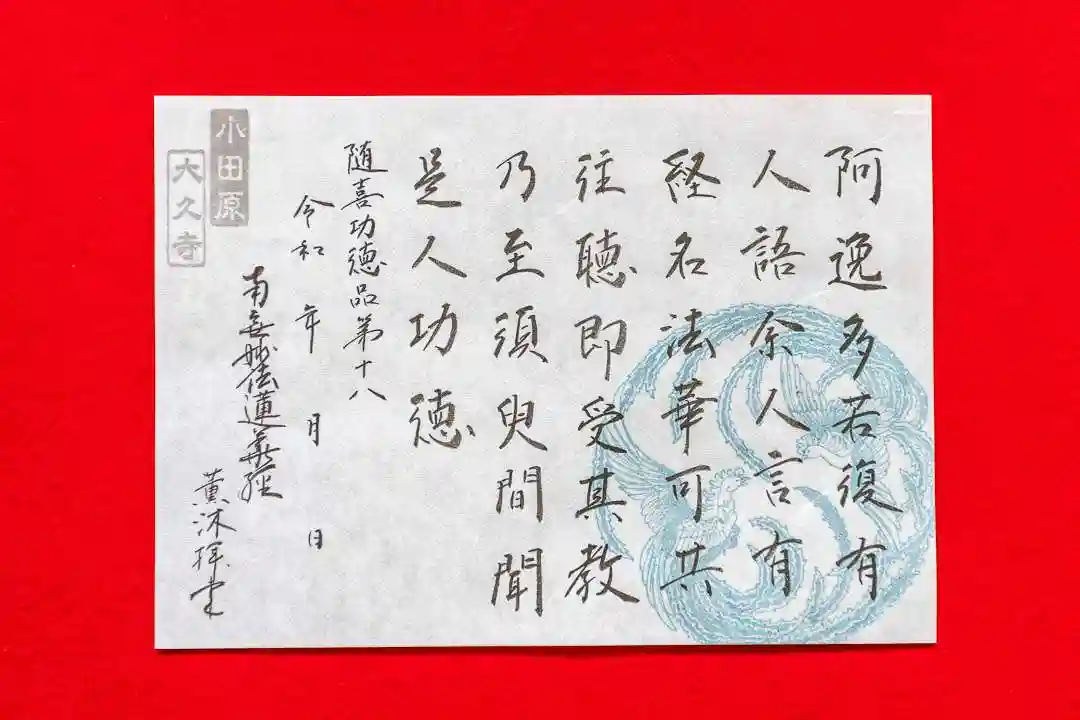 阿逸多若復有
人語余人言有
経名法華可共
往聴即受其教
乃至須臾間聞
是人功徳
随喜功徳品第十八
令和 年 月 日
南無妙法蓮華経
薫沐拝書
小田原
大久寺